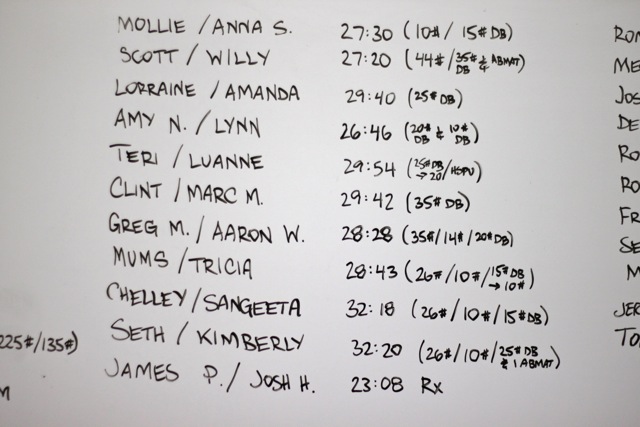 MOLLIE / ANNA S. 27:30 (10# / 15# DB)
SCOTT / WILLY 27:20 (44# / 35# DB & ABMAT)
LORRAINE / AMANDA 29:40 (25# DB)
AMY N. / LYNN 26:46 (20# DB & 10# DB)
TERI / LUANNE 29:54 (25# DB → 20 / HSPU)
CLINT / MARC M. 29:42 (35# DB)
GREG M. / AARON W. 28:28 (35# / 14# / 20# DB)
MUMS / TRICIA 28:43 (26# / 10# / 15# DB → 10#)
CHELLEY / SANGEETA 32:18 (26# / 10# / 15# DB)
SETH / KIMBERLY 32:20 (26# / 10# / 25# DB & 1 ABMAT)
JAMES P. / JOSH H. 23:08 Rx
225# / 135#)
M
RON
ME
JOS
DE
RO
RO
FR
SE
M
JER
TO